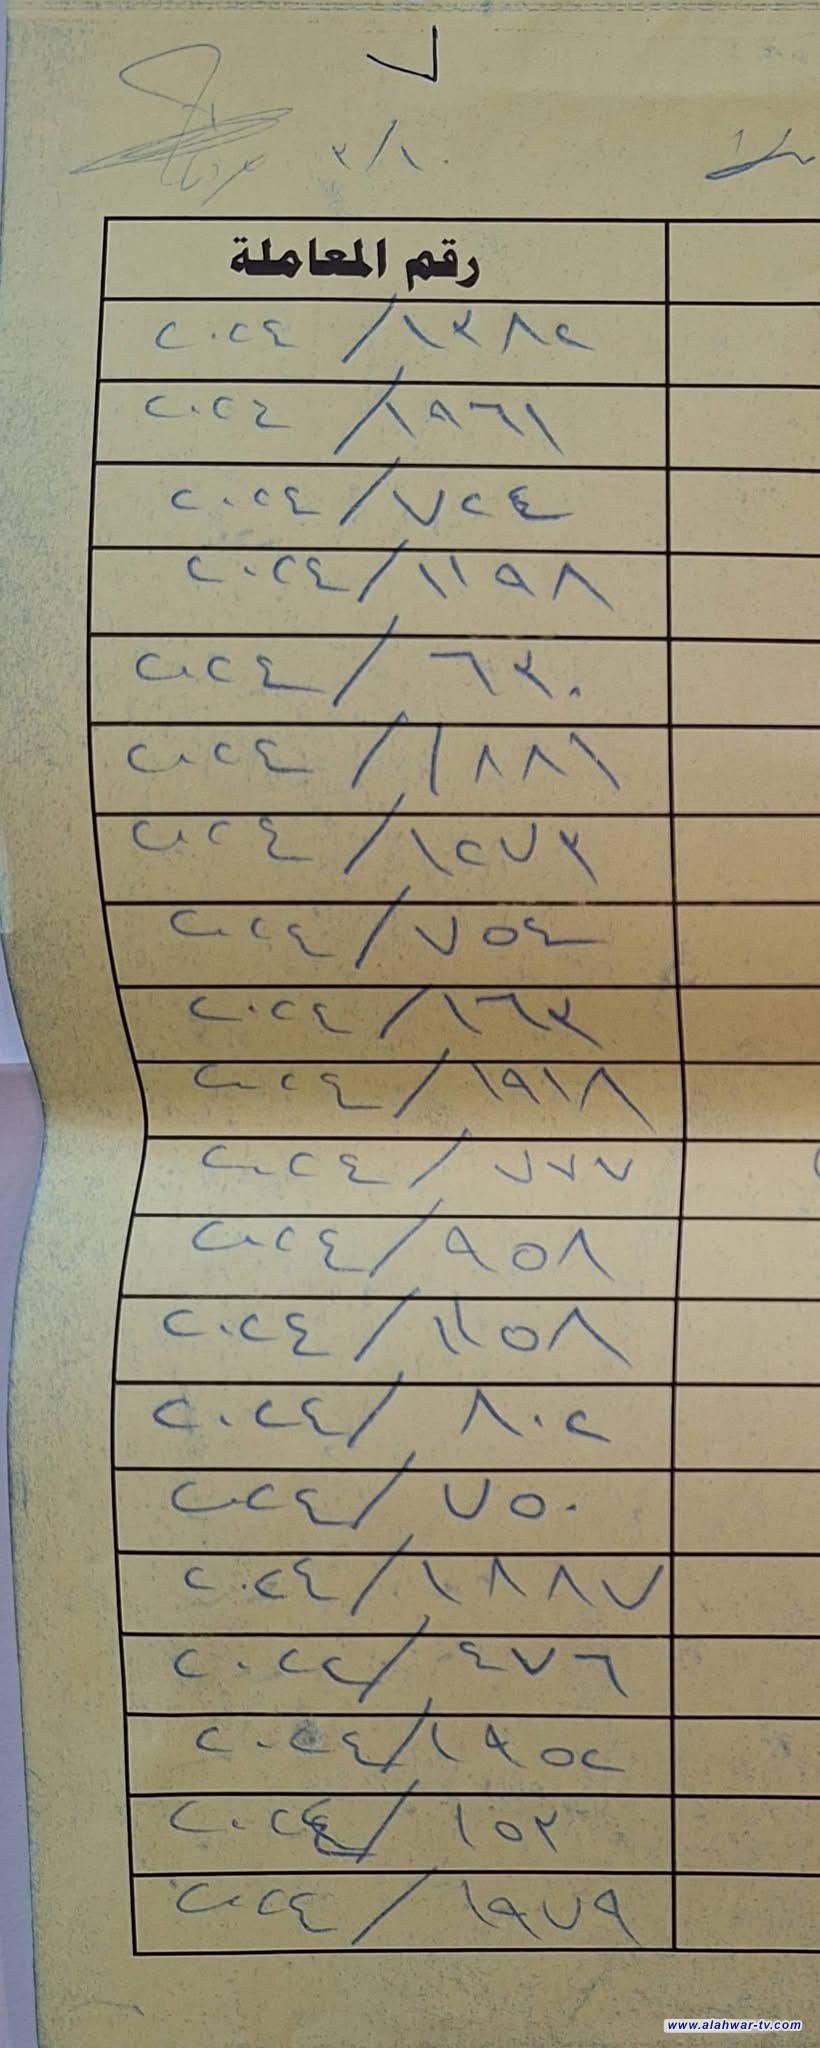 ٧
٣/١٠
رقم المعاملة
٢٠٢٤ / ١٣٨٢
٢٠٢٤ / ١٩٦١
٢٠٢٤ / ٧٢٤
٢٠٢٤ / ١١٩٨
٢٠٢٤ / ٦٣٠
٢٠٢٤ / ١٨٨١
٢٠٢٤ / ١٢٧٣
٢٠٢٤ / ٧٥٤
٢٠٢٤ / ١٦٣
٢٠٢٤ / ١٩١٨
٢٠٢٤ / ٧٧٧
٢٠٢٤ / ٩٥٨
٢٠٢٤ / ١١٥٨
٢٠٢٤ / ٨٠٢
٢٠٢٤ / ٧٥٠
٢٠٢٤ / ١٨٨٧
٢٠٢٤ / ٤٧٦
٢٠٢٤ / ١٩٥٢
٢٠٢٤ / ١٥٣
٢٠٢٤ / ١٩٧٩
www.alahwar-tv.com